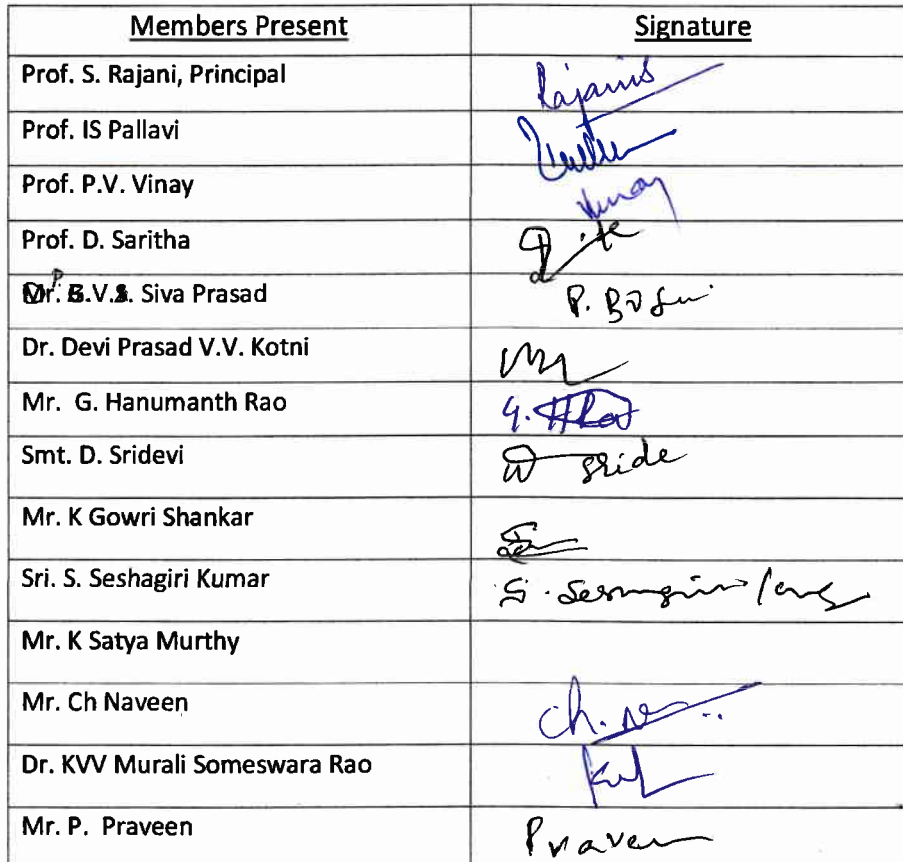 Members Present Signature
Prof. S. Rajani, Principal Rajani
Prof. IS Pallavi
Prof. P.V. Vinay Vinay
Prof. D. Saritha
Siva Prasad P. B
Dr. Devi Prasad V.V. Kotni
Mr. G. Hanumanth Rao G. HRao
Smt. D. Sridevi D Sride
Mr. K Gowri Shankar
Sri. S. Seshagiri Kumar S.
Mr. K Satya Murthy
Mr. Ch Naveen Ch. N
Dr. KVV Murali Someswara Rao
Mr. P. Praveen Praveen